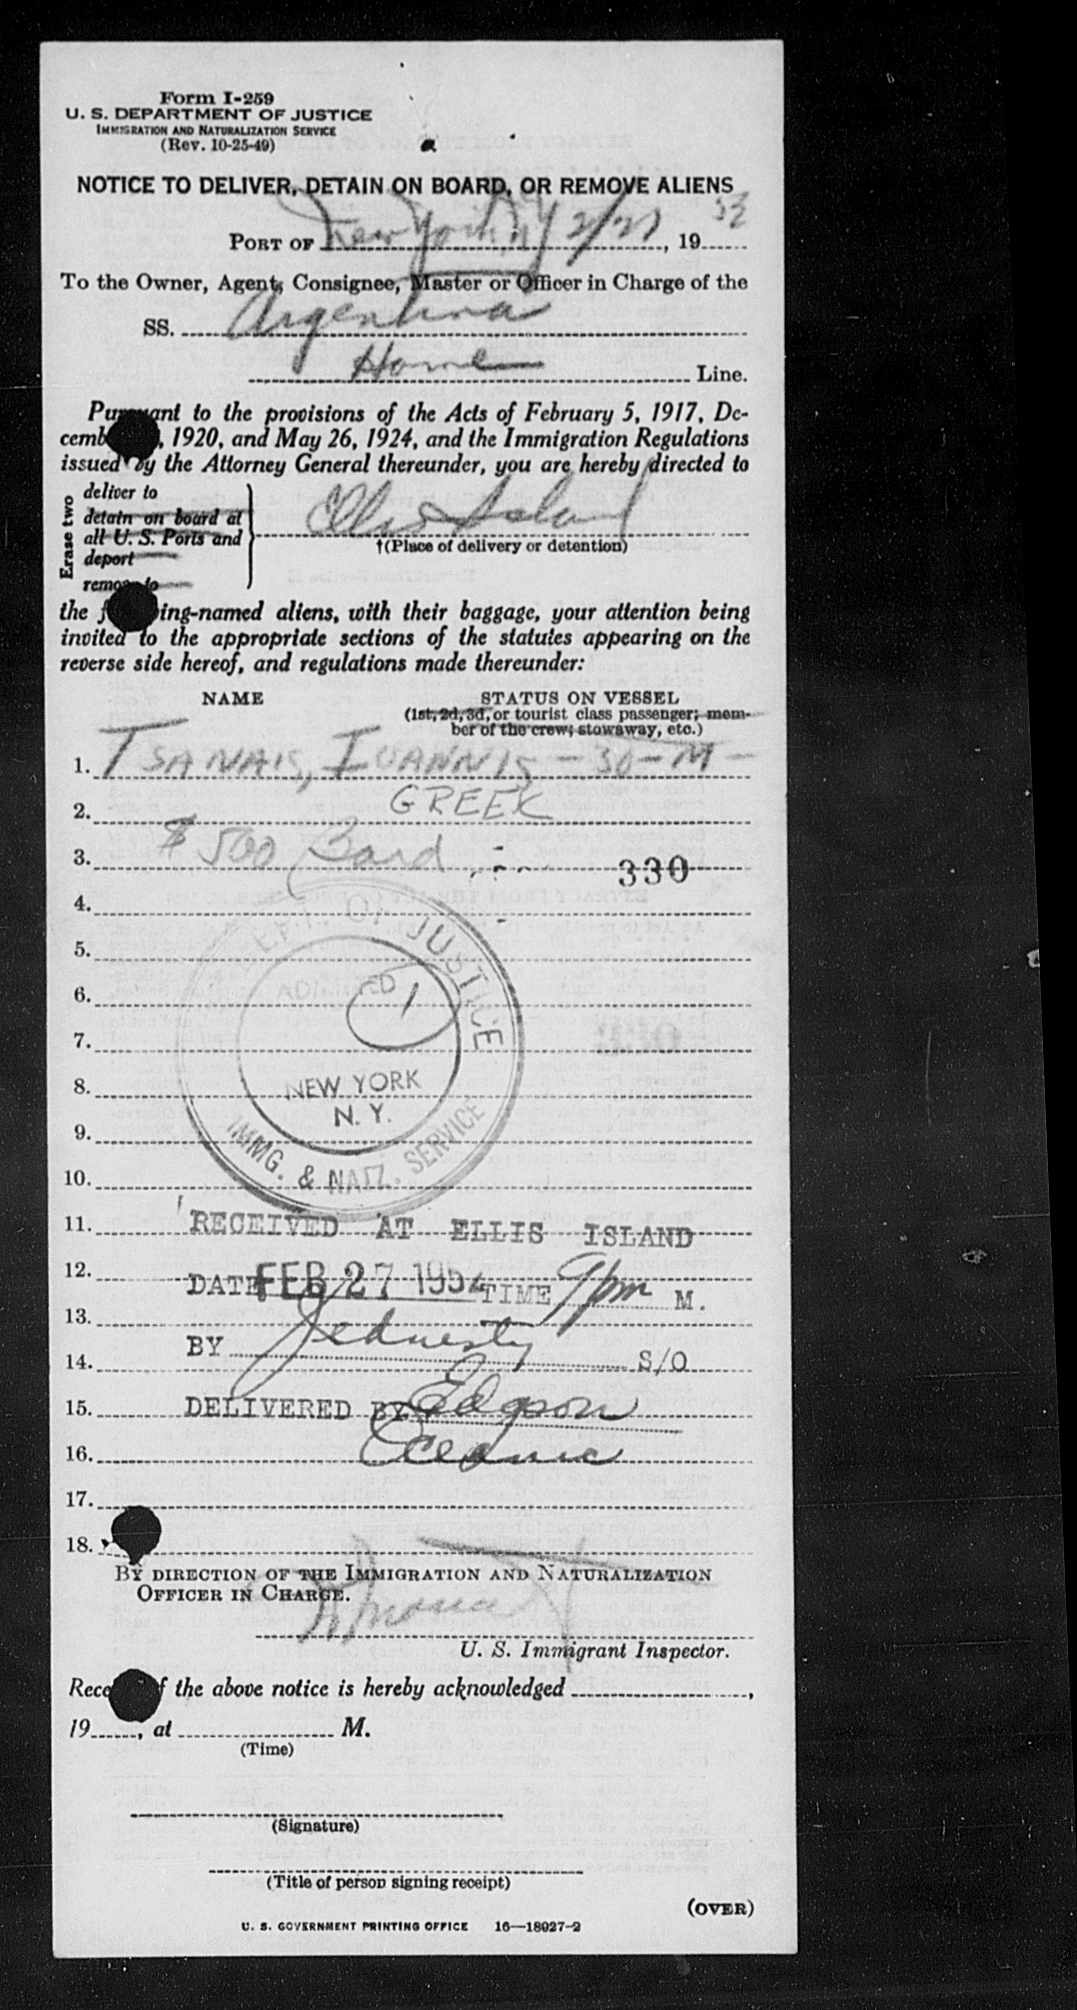 Form I-259
U. S. DEPARTMENT OF JUSTICE
IMMIGRATION AND NATURALIZATION SERVICE
(Rev. 10-25-49)
NOTICE TO DELIVER, DETAIN ON BOARD, OR REMOVE ALIENS
PORT OF New York NY 2/27, 19
To the Owner, Agent, Consignee, Master or Officer in Charge of the
SS. Argentina
Home Line.
Pursuant to the provisions of the Acts of February 5, 1917, De-
cemb , 1920, and May 26, 1924, and the Immigration Regulations
issued by the Attorney General thereunder, you are hereby directed to
Erase two
deliver to
detain on board at
all U. S. Ports and
deport
remove to
Ellis Island
†(Place of delivery or detention)
the following-named aliens, with their baggage, your attention being
invited to the appropriate sections of the statutes appearing on the
reverse side hereof, and regulations made thereunder:
NAME STATUS ON VESSEL
(1st, 2d, 3d, or tourist class passenger; mem-
ber of the crew; stowaway, etc.)
1. TSANAIS, IOANNIS - 30 - M -
2. GREEK
3. $500 Bond 330
4.
DEPT. OF JUSTICE
5.
6. ADMITTED 1
7.
8. NEW YORK
N. Y.
9.
IMMG. & NATZ. SERVICE
10.
11. RECEIVED AT ELLIS ISLAND
12. DATE FEB 27 1952 TIME 9 pm M.
13.
BY S/O
14.
15. DELIVERED BY Edgson
16. Oceanic
17.
18.
BY DIRECTION OF THE IMMIGRATION AND NATURALIZATION
OFFICER IN CHARGE.
U. S. Immigrant Inspector.
Receipt of the above notice is hereby acknowledged ,
19 , at M.
(Time)
(Signature)
(Title of person signing receipt)
(OVER)
U. S. GOVERNMENT PRINTING OFFICE 16—18027-2